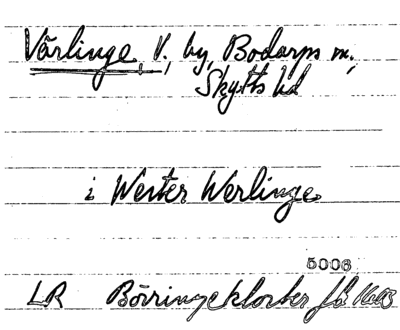 Värlinge, V., by, Bodarps sn.,
Skytts hd
i Wester Werlinge
5006
LR Börringekloster jb